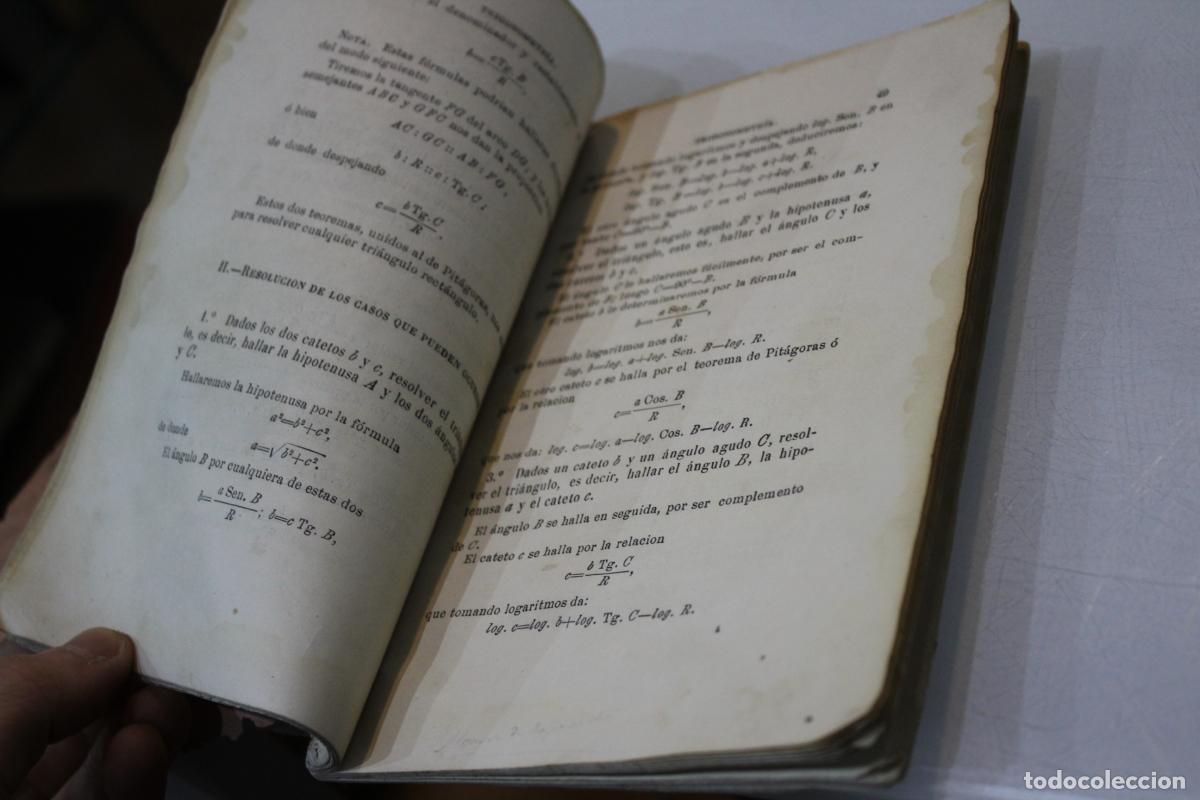 TRIGONOMETRÍA.
el denominador y
b=c Tg. B / R
NOTA. Estas fórmulas podrian hallarse
del modo siguiente:
Tiremos la tangente FG del arco DG; y los
semejantes ABC y GFC nos dan la
AC : GC :: AB : FG,
ó bien
b : R :: c : Tg. C;
de donde despejando
c= b Tg. C / R.
Estos dos teoremas, unidos al de Pitágoras, nos
para resolver cualquier triángulo rectángulo.
II.—RESOLUCION DE LOS CASOS QUE PUEDEN
1.º Dados los dos catetos b y c, resolver el
lo, es decir, hallar la hipotenusa A y los dos
y C.
Hallaremos la hipotenusa por la fórmula
a²=b²+c²,
de donde
a=√b²+c².
El ángulo B por cualquiera de estas dos
b= a Sen. B / R ; b=c Tg. B,
49
TRIGONOMETRÍA.
tomando logaritmos y despejando log. Sen. B en
y log. Tg. B en la segunda, deduciremos:
log. Sen. B=log. b—log. a+log. R,
log. Tg. B=log. b—log. c+log. R.
otro ángulo agudo C es el complemento de B, y
C=90º—B.
2.º Dados un ángulo agudo B y la hipotenusa a,
resolver el triángulo, esto es, hallar el ángulo C y los
b y c.
El ángulo C lo hallaremos fácilmente, por ser el com-
plemento de B; luego C=90º—B.
El cateto b le determinaremos por la fórmula
b= a Sen. B / R,
que tomando logaritmos nos da:
log. b=log. a+log. Sen. B—log. R.
El otro cateto c se halla por el teorema de Pitágoras ó
por la relacion
c= a Cos. B / R,
que nos da: log. c=log. a—log. Cos. B—log. R.
3.º Dados un cateto b y un ángulo agudo C, resol-
ver el triángulo, es decir, hallar el ángulo B, la hipo-
tenusa a y el cateto c.
El ángulo B se halla en seguida, por ser complemento
de C.
El cateto c se halla por la relacion
c= b Tg. C / R,
que tomando logaritmos da:
log. c=log. b+log. Tg. C—log. R.
4
todocoleccion